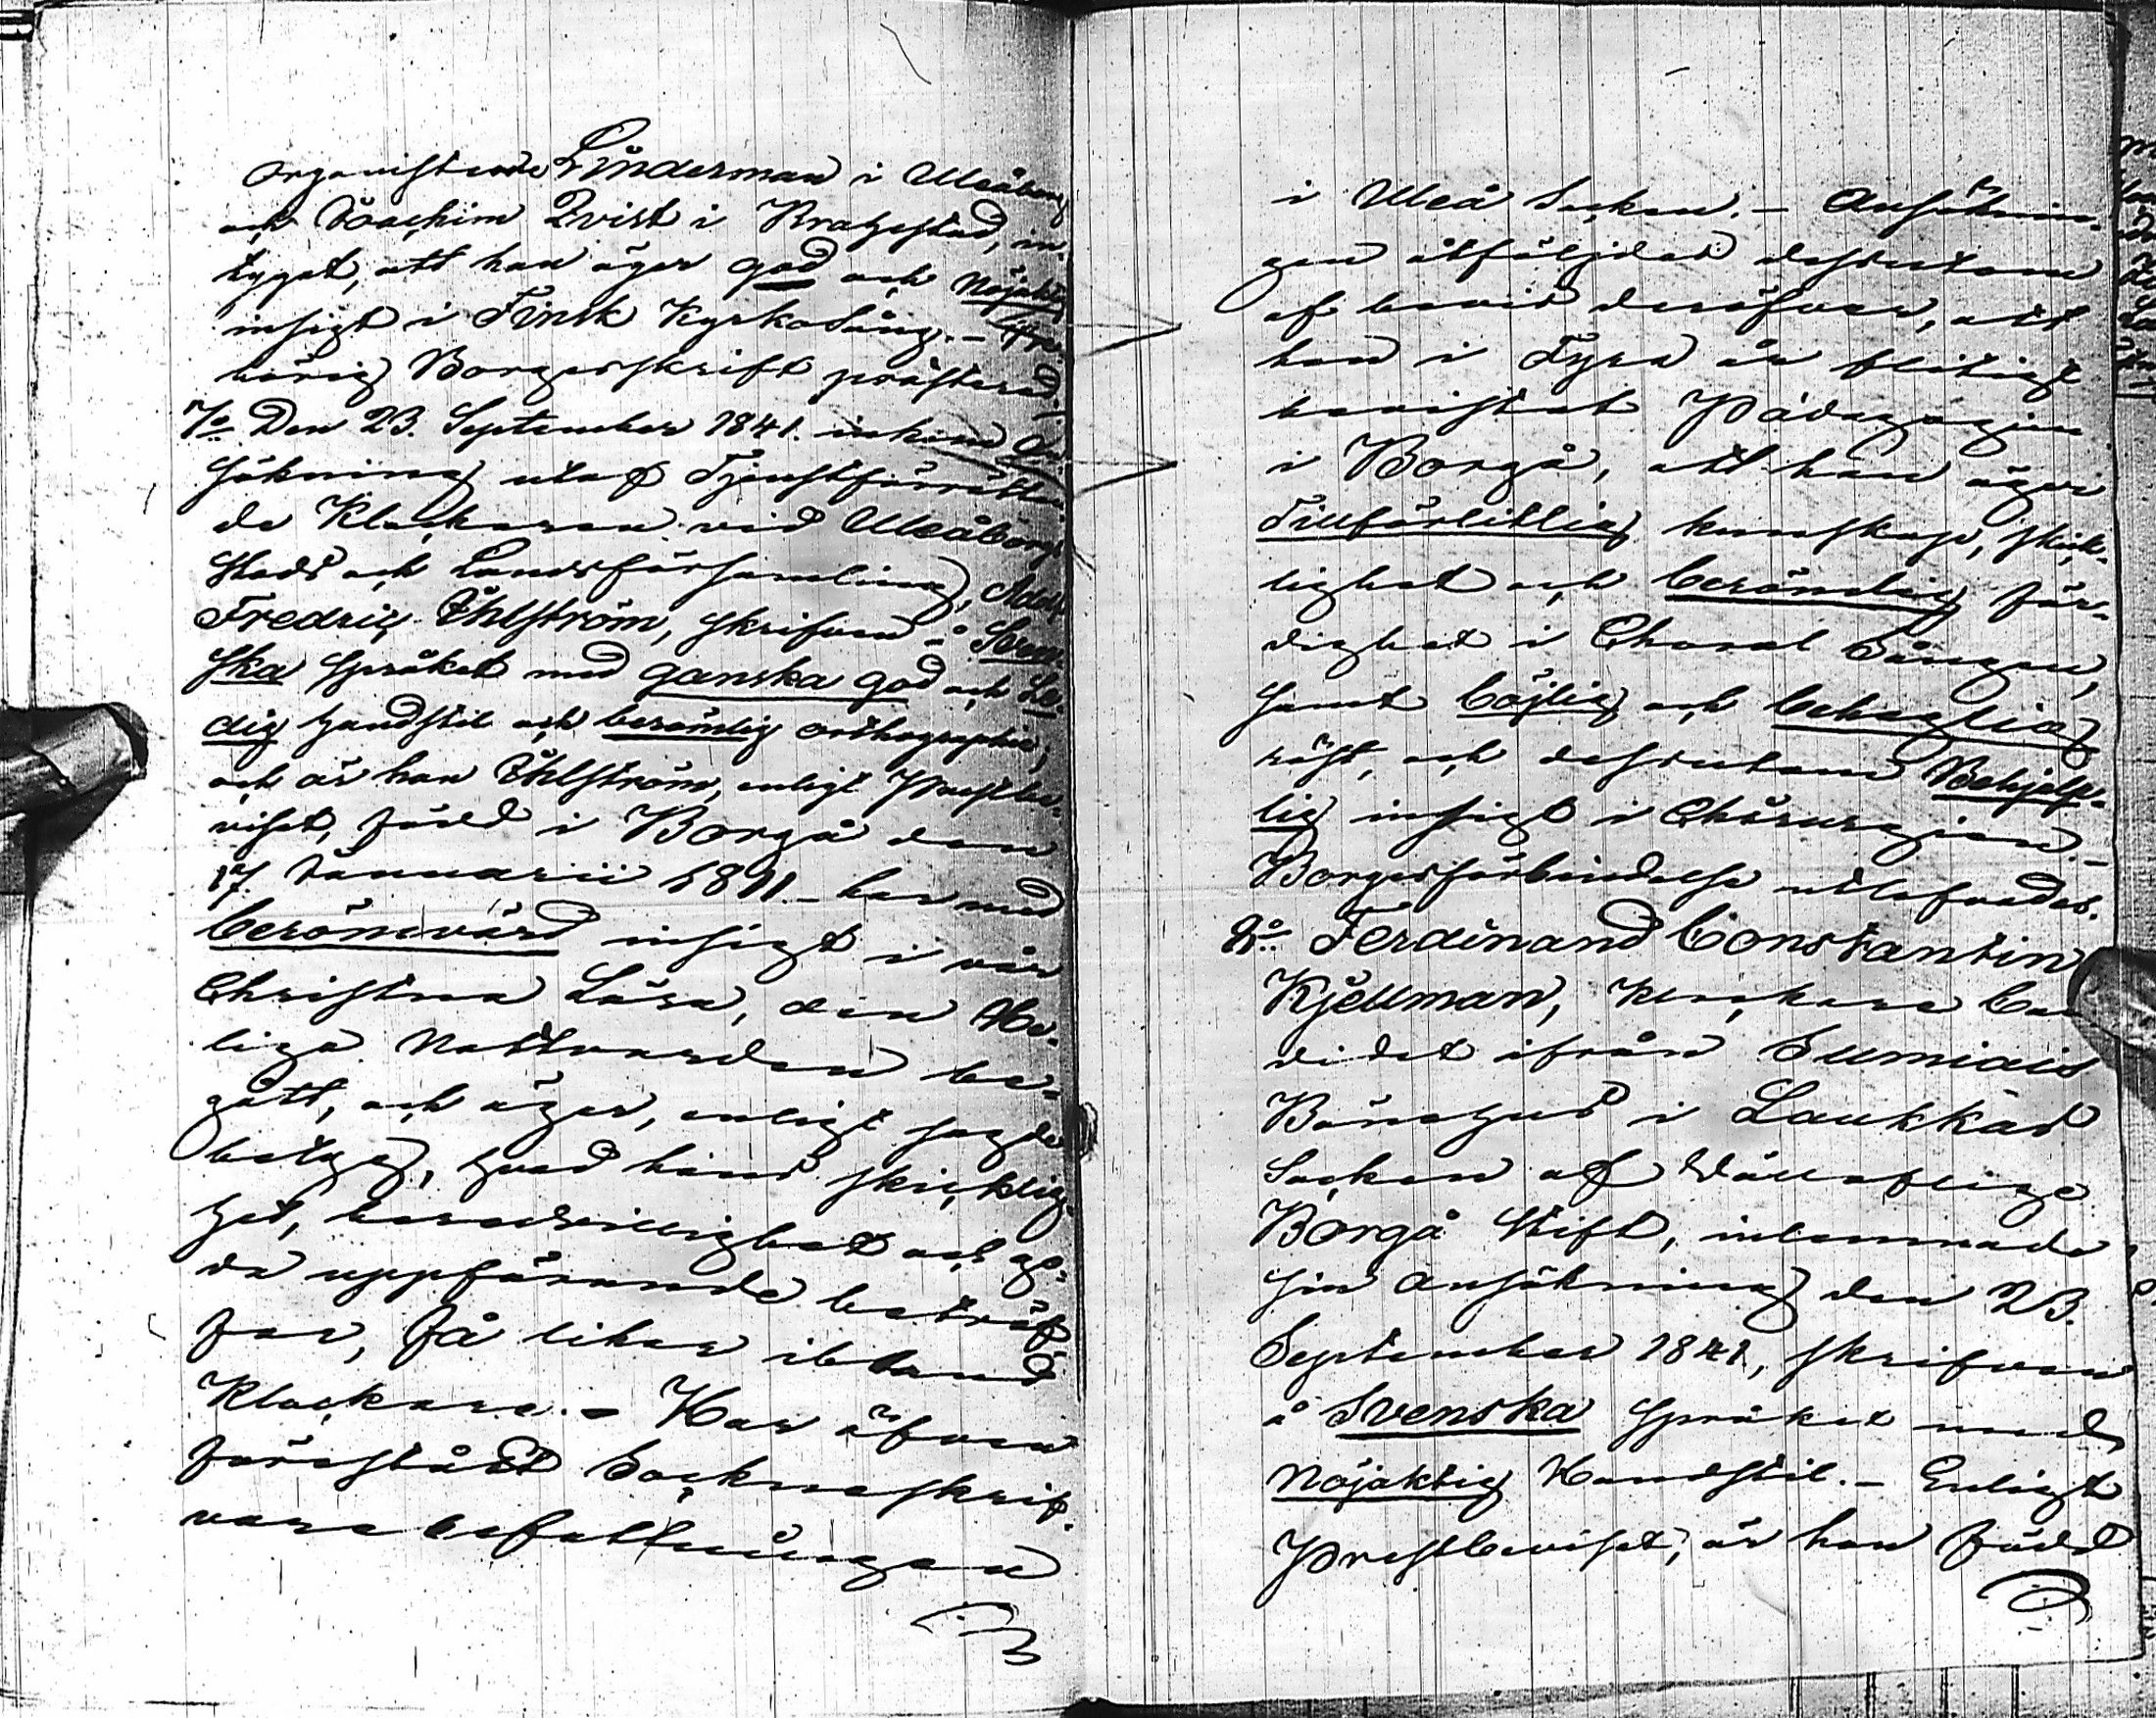 Organisterne Linderman i Uleåborg
och Joachim Qvist i Brahestad, in-
tygat, att han äger god och Nöjaktig
insigt i Finsk Kyrkosång. –
börig Borgesskrift presterad.
7o Den 23. September 1841. inkom An-
sökning utaf Tjenstförrättan-
de Klockaren vid Uleåborgs
Stads och Landsförsamling, Adolf
Fredric Öhlström, skrifven å Sven-
ska Språket med ganska god och Le-
dig handstil och berömlig orthographie,
och är han Öhlström, enligt Prestbe-
viset, född i Borgå den
17. Januarii 1811. – har med
berömvärd insigt i vår
Christna Lära, den He-
liga Nattvarden be-
gått, och äger, enligt sagde
betyg, hvad hans skicklig-
het, beredvillighet och
da uppförande beträf-
far, få likar ibland
Klockare. – Har äfven
förestått Sockneskrif-
vare befattningen
i Uleå Socken. – Ansöknin-
gen åtföljdes dessutom
af bevis deröfver, att
han i Fyra år flitigt
bevistat Pädagogien
i Borgå, att han äger
Tillförlitlig kunskap, skick-
lighet och berömlig fär-
dighet i Choral Sången,
samt böjlig och behaglig
röst, och dessutom Behjelp-
lig insigt i Chirurgien. –
Borgesförbindelse utlofvades.
8o Ferdinand Constantin
Kjellman, Klockare
videt ifrån Sumiais
Bönehus i Laukkas
Socken af Vällofliga
Borgå Stift, inlemnade
sin ansökning den 23.
September 1841, skrifven
å Svenska Språket med
Nöjaktig Handstil. – Enligt
Prestbeviset, är han född